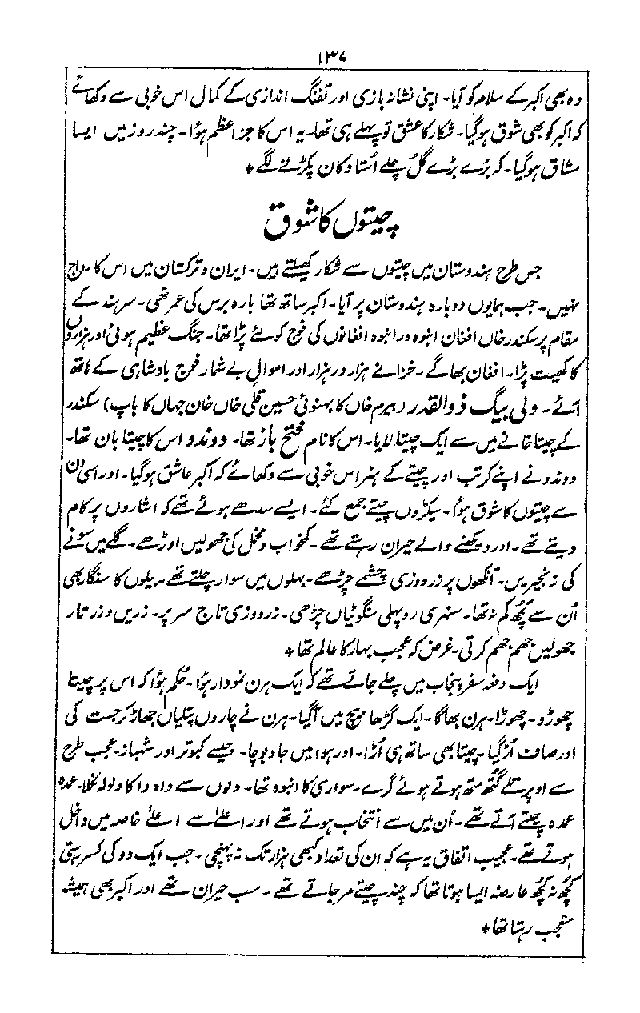 ۱۳۷
وہ بھی اکبر کے سلام کو آیا۔ اپنی نشانہ بازی اور تفنگ اندازی کے کمال اس خوبی سے دکھائے
کہ اکبر کو بھی شوق ہوگیا۔ شکار کا عشق تو پہلے ہی تھا۔ یہ اس کا جز اعظم ہؤا۔ چند روز میں ایسا
مشاق ہوگیا۔ کہ بڑے بڑے گُل چلے اُستاد کان پکڑنے لگے *
چیتوں کا شوق
جس طرح ہندوستان میں چیتوں سے شکار کھیلتے ہیں۔ ایران و ترکستان میں اس کا رواج
نہیں۔ جب ہمایوں دوبارہ ہندوستان پر آیا۔ اکبر ساتھ تھا بارہ برس کی عمر تھی۔ سرہند کے
مقام پر سکندر خاں افغان انبوہ در انبوہ افغانوں کی فوج کو لئے پڑا تھا۔ جنگ عظیم ہوئی اور ہزاروں
کا کھیت پڑا۔ افغان بھاگے۔ خزانے ہزار در ہزار اور اموال بے شمار فوج بادشاہی کے ہاتھ
آئے۔ ولی بیگ ذوالقدر (بیرم خاں کا بہنوئی حسین قلی خاں خان جہاں کا باپ) سکندر
کے چیتا خانے میں سے ایک چیتا لایا۔ اس کا نام فتح باز تھا۔ دوندو اس کا چیتا بان تھا۔
دوندو نے اپنے کرتب اور چیتے کے ہنر اس خوبی سے دکھائے کہ اکبر عاشق ہوگیا۔ اور اسی دن
سے چیتوں کا شوق ہؤا۔ سیکڑوں چیتے جمع کئے۔ ایسے سدھے ہوئے تھے کہ اشاروں پر کام
دیتے تھے۔ اور دیکھنے والے حیران رہتے تھے۔ کمخواب و مخمل کی جھولیں اوڑھے۔ گلے میں سونے
کی زنجیریں۔ آنکھوں پر زردوزی چشمے چڑھے۔ بہلوں میں سوار چلتے تھے۔ بیلوں کا سنگار بھی
اُن سے کچھ کم نہ تھا۔ سنہری روپہلی سنگوٹیاں چڑھی۔ زردوزی تاج سر پر۔ زریں و زر تار
جھولیں جھم جھم کرتی۔ غرض کہ عجب بہار کا عالم تھا *
ایک دفعہ سفر پنجاب میں چلے جاتے تھے کہ ایک ہرن نمودار ہؤا۔ حکم ہؤا کہ اس پر چیتا
چھوڑو۔ چھوڑا۔ ہرن بھاگا۔ ایک گڑھا بیچ میں آگیا۔ ہرن نے چاروں پتلیاں جھاڑ کر جست کی
اور صاف اُڑ گیا۔ چیتا بھی ساتھ ہی اُڑا۔ اور ہوا میں جا دبوچا۔ جیسے کبوتر اور شہباز۔ عجب طرح
سے اوپر تلے گتھ متھ ہوتے ہوئے گرے۔ سواری کا انبوہ تھا۔ دلوں سے واہ وا کا ولولہ نکلا۔ عمدہ
عمدہ چیتے آتے تھے۔ اُن میں سے انتخاب ہوتے تھے اور اعلےٰ سے اعلےٰ خاصہ میں داخل
ہوتے تھے۔ عجیب اتفاق یہ ہے کہ ان کی تعداد کبھی ہزار تک نہ پہنچی۔ جب ایک دو کی کسر رہتی
کچھ نہ کچھ عارضہ ایسا ہوتا تھا کہ چند چیتے مر جاتے تھے۔ سب حیران تھے اور اکبر بھی ہمیشہ
متعجب رہتا تھا *